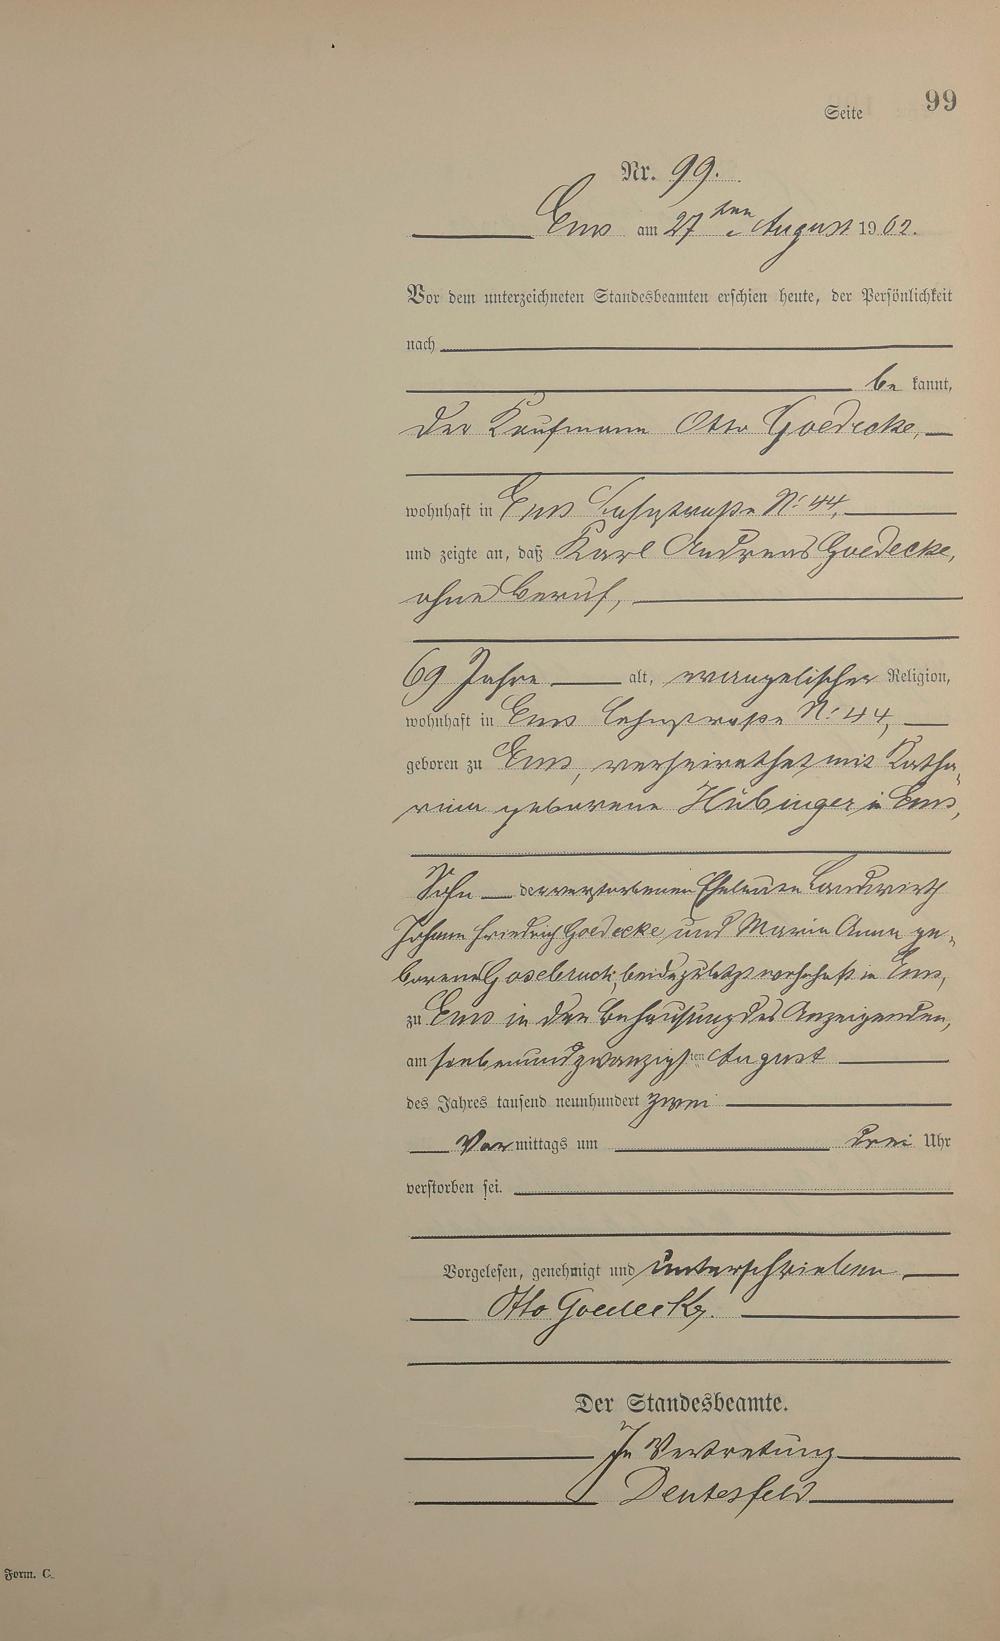 Seite 99
Nr. 99.
Ems am 27ten August 1902.
Vor dem unterzeichneten Standesbeamten erschien heute, der Persönlichkeit
nach
be kannt,
der Kaufmann Otto Goedecke,
wohnhaft in Ems Lahnstraße No 44,
und zeigte an, daß Karl Andreas Goedecke,
ohne Beruf,
69 Jahre alt, evangelischer Religion,
wohnhaft in Ems Lahnstraße No 44,
geboren zu Ems, verheirathet mit Katha-
rina geborene Hübinger in Ems,
Sohn der verstorbenen Eheleute Landwirth
Johann Friedrich Goedecke und Maria Anna ge-
borene Gosebruch, beide zuletzt wohnhaft in Ems,
zu Ems in der Behausung des Anzeigenden,
am siebenundzwanzigsten August
des Jahres tausend neunhundert zwei
Vormittags um drei Uhr
verstorben sei.
Vorgelesen, genehmigt und unterschrieben
Otto Goedecke.
Der Standesbeamte.
In Vertretung
Deutesfeld
Form. C.